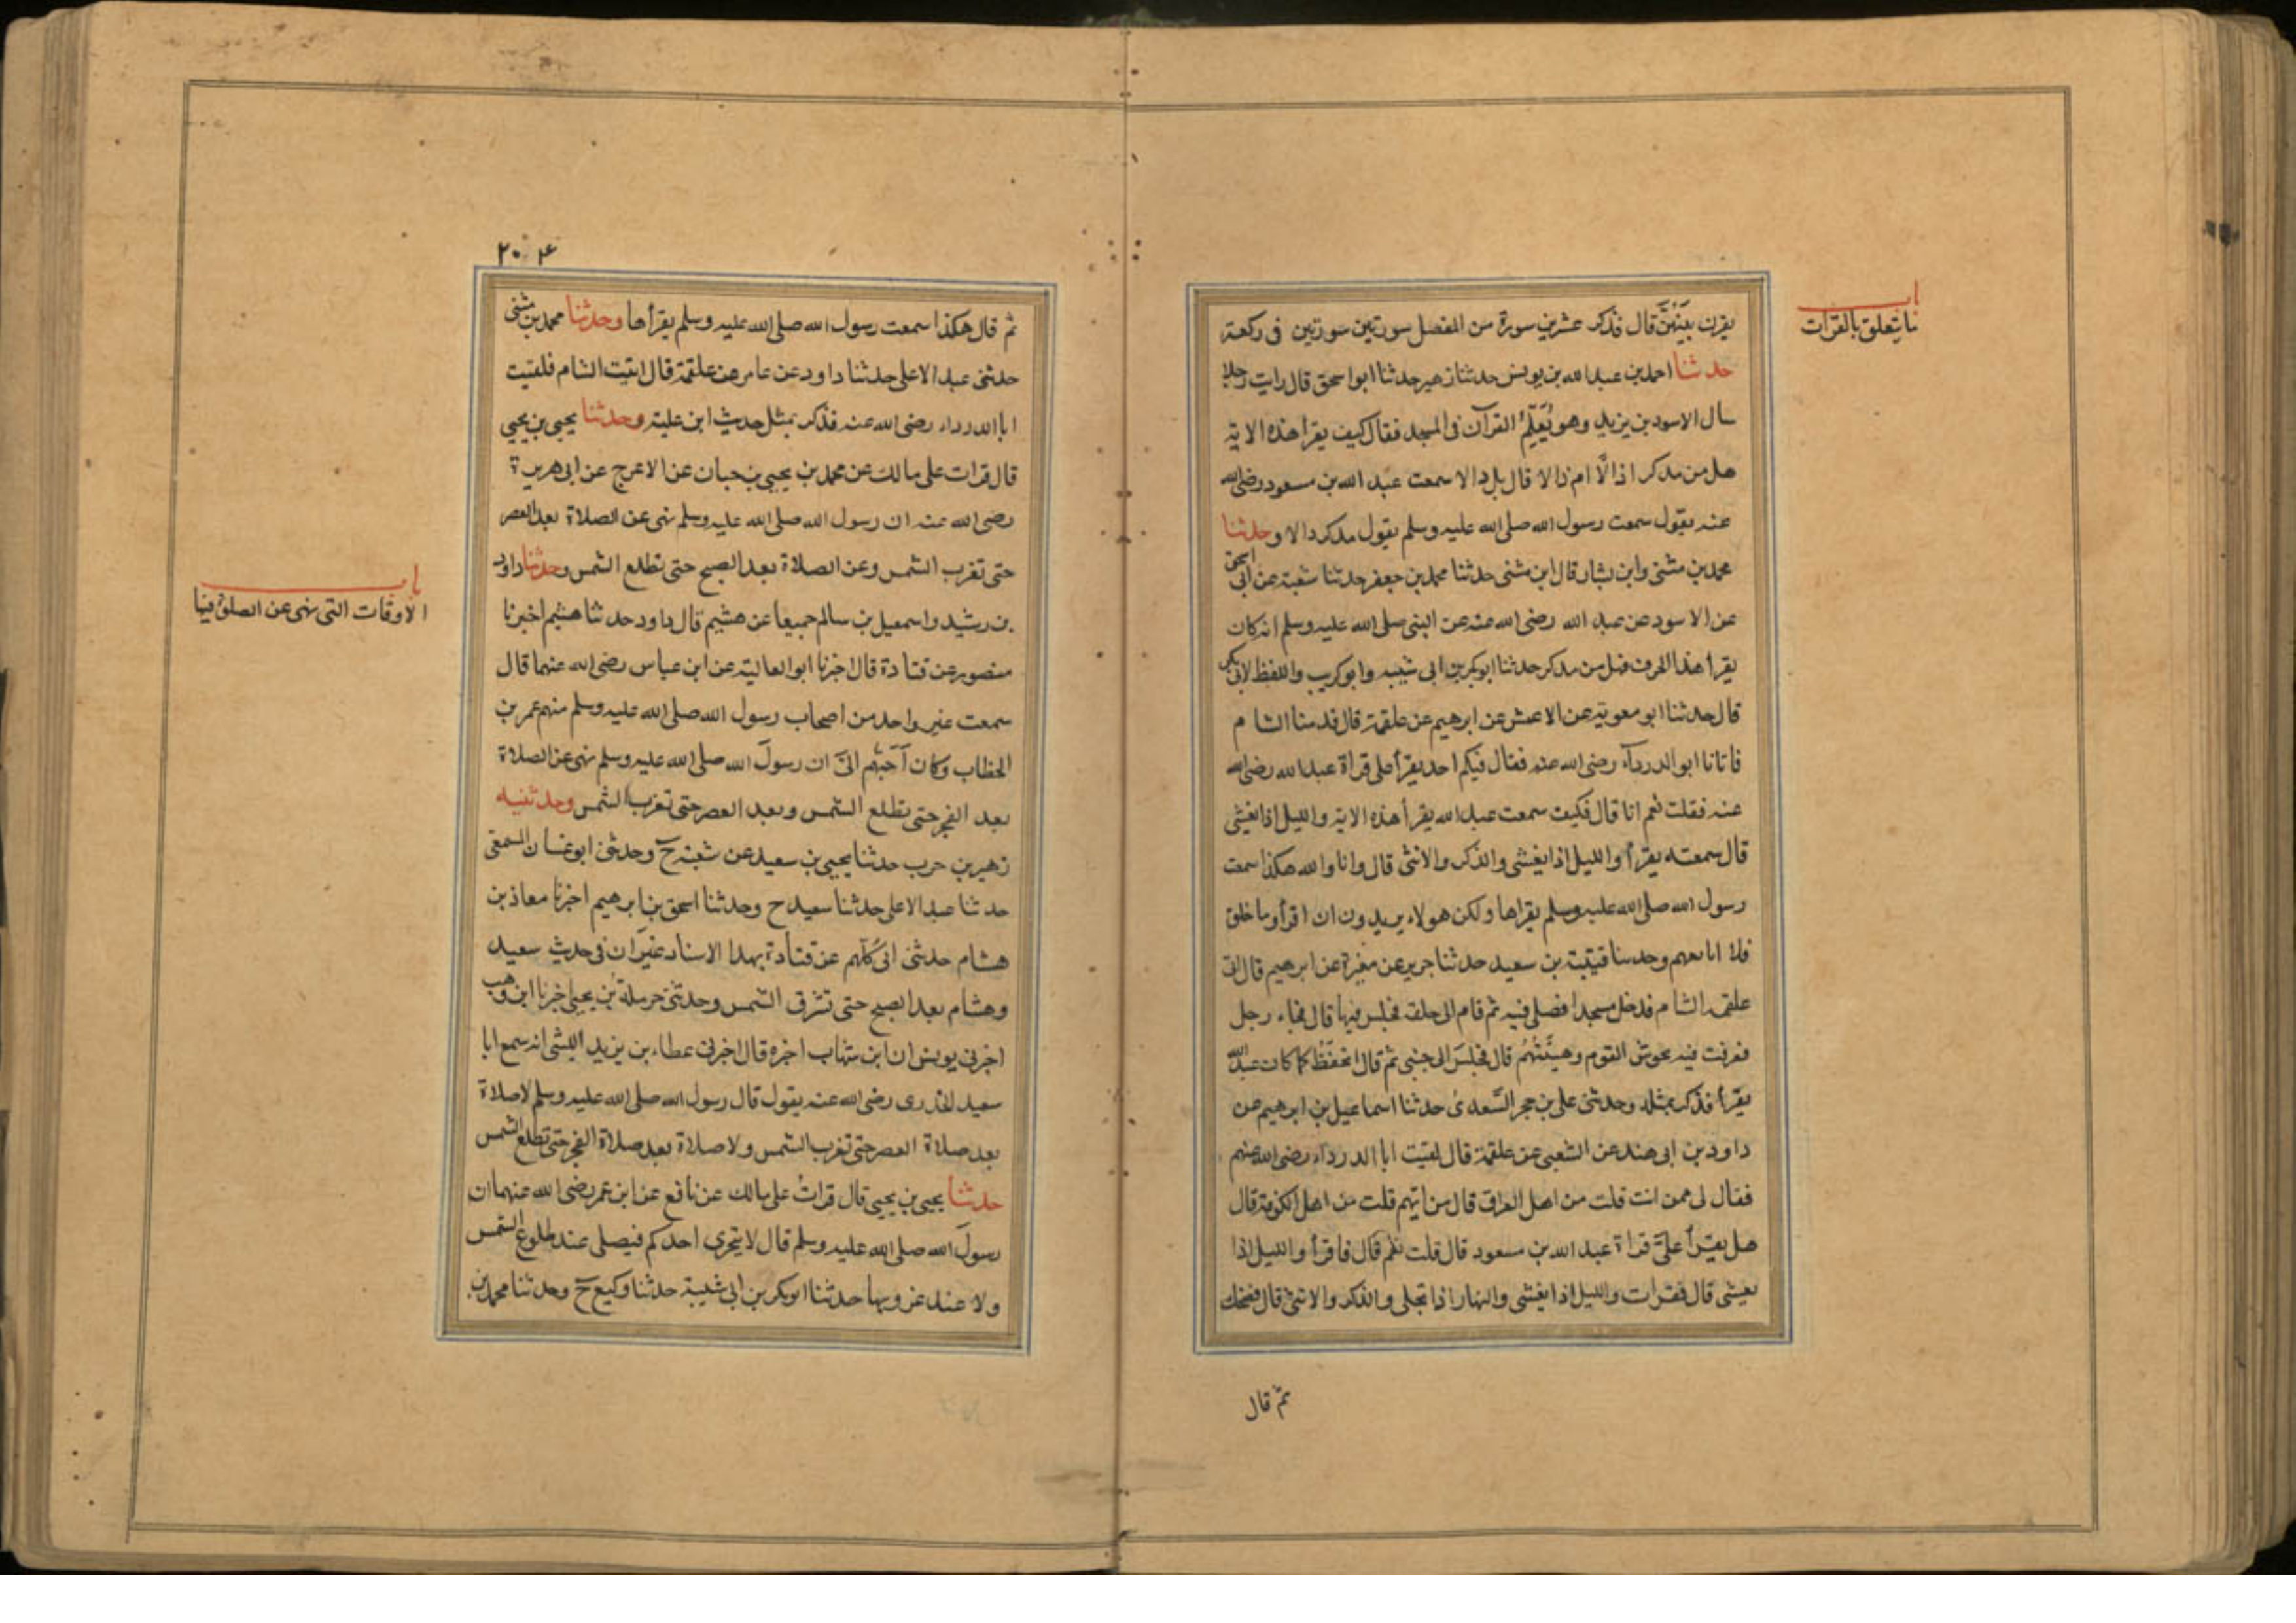 باب
ما يتعلق بالقرات
يقرن بينهن قال فذكر عشرين سورة من المفصل سورتين سورتين فى ركعة
حدثنا احمد بن عبد الله بن يونس حدثنا زهير حدثنا ابو اسحق قال رايت رجلا
سال الاسود بن يزيد وهو يُعَلِّمُ القرآن فى المسجد فقال كيف يقرأ هذه الاية
هل من مدكر اذالًا ام ذالا قال بل دالا سمعت عبد الله بن مسعود رضى الله
عنه يقول سمعت رسول الله صلى الله عليه وسلم يقول مدكر دالا وحدثنا
محمد بن مثنى وابن بشار قال ابن مثنى حدثنا محمد بن جعفر حدثنا شعبة عن ابى اسحق
عن الاسود عن عبد الله رضى الله عنه عن النبى صلى الله عليه وسلم انه كان
يقرأ هذا الحرف فهل من مدكر حدثنا ابو بكر بن ابى شيبه وابو كريب واللفظ لابى بكر
قال حدثنا ابو معوية عن الاعمش عن ابرهيم عن علقمة قال قدمنا الشام
فاتانا ابو الدرداء رضى الله عنه فقال فيكم احد يقرأ على قراة عبد الله رضى الله
عنه فقلت نعم انا قال فكيف سمعت عبد الله يقرأ هذه الاية والليل اذا يغشى
قال سمعته يقرأ والليل اذا يغشى والذكر والانثى قال وانا والله هكذا سمعت
رسول الله صلى الله عليه وسلم يقراها ولكن هولاء يريدون ان اقرأ وما خلق
فلا اتابعهم وحدثنا قتيبة بن سعيد حدثنا جرير عن مغيرة عن ابرهيم قال اتى
علقمه الشام فدخل مسجدا فصلى فيه ثم قام الى حلقه فجلس فيها قال فجاء رجل
فعرفت فيه تحوش القوم وهيئتهم قال فجلس الى جنبى ثم قال اتحفظ كما كان عبد الله
يقرأ فذكر بمثله وحدثنى على بن حجر السعدى حدثنا اسماعيل بن ابرهيم عن
داود بن ابى هند عن الشعبى عن علقمة قال لقيت ابا الدرداء رضى الله عنهم
فقال لى ممن انت قلت من اهل العراق قال من ايهم قلت من اهل الكوفة قال
هل يقرأ علىَّ قراة عبد الله بن مسعود قال قلت نعم قال فاقرأ والليل اذا
يغشى قال فقرات والليل اذا يغشى والنهار اذا تجلى والذكر والانثى قال فضحك
ثم قال
٢٠٤
ثم قال هكذا سمعت رسول الله صلى الله عليه وسلم يقرأها وحدثنا محمد بن مثنى
حدثنى عبد الاعلى حدثنا داود عن عامر عن علقمة قال اتيت الشام فلقيت
ابا الدرداء رضى الله عنه فذكر بمثل حديث ابن علية وحدثنا يحيى بن يحيى
قال قرات على مالك عن محمد بن يحيى بن حبان عن الاعرج عن ابى هريرة
رضى الله عنه ان رسول الله صلى الله عليه وسلم نهى عن الصلاة بعد العصر
حتى تغرب الشمس وعن الصلاة بعد الصبح حتى تطلع الشمس وحدثنا داود
باب
الاوقات التى نهى عن الصلوة فيها
بن رشيد واسمعيل بن سالم جميعا عن هشيم قال داود حدثنا هشيم اخبرنا
منصور عن قتادة قال اخبرنا ابو العالية عن ابن عباس رضى الله عنهما قال
سمعت غير واحد من اصحاب رسول الله صلى الله عليه وسلم منهم عمر بن
الخطاب وكان أحَبَّهم الىَّ ان رسولَ الله صلى الله عليه وسلم نهى عن الصلاة
بعد الفجر حتى تطلع الشمس وبعد العصر حتى تغرب الشمس وحدثنيه
زهير بن حرب حدثنا يحيى بن سعيد عن شعبة ح وحدثنى ابو غسان المسمعى
حدثنا عبد الاعلى حدثنا سعيد ح وحدثنا اسحق بن ابرهيم اخبرنا معاذ بن
هشام حدثنى ابى كلهم عن قتادة بهذا الاسناد غير ان فى حديث سعيد
وهشام بعد الصبح حتى تشرق الشمس وحدثنى حرملة بن يحيى اخبرنا ابن وهب
اخبرنى يونس ان ابن شهاب اخبره قال اخبرنى عطاء بن يزيد الليثى انه سمع ابا
سعيد الخدرى رضى الله عنه يقول قال رسول الله صلى الله عليه وسلم لا صلاة
بعد صلاة العصر حتى تغرب الشمس ولا صلاة بعد صلاة الفجر حتى تطلع الشمس
حدثنا يحيى بن يحيى قال قراتُ على مالك عن نافع عن ابن عمر رضى الله عنهما ان
رسولَ الله صلى الله عليه وسلم قال لا يتحرى احدكم فيصلى عند طلوع الشمس
ولا عند غروبها حدثنا ابو بكر بن ابى شيبة حدثنا وكيع ح وحدثنا محمد بن